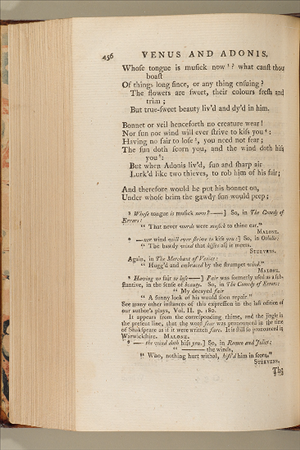 456 VENUS AND ADONIS.
Whose tongue is musick now³? what canst thou
boast
Of things long since, or any thing ensuing?
The flowers are sweet, their colours fresh and
trim;
But true-sweet beauty liv'd and dy'd in him.
Bonnet or veil henceforth no creature wear!
Nor sun nor wind will ever strive to kiss you⁴:
Having no fair to lose⁵, you need not fear;
The sun doth scorn you, and the wind doth hiss
you⁶:
But when Adonis liv'd, sun and sharp air
Lurk'd like two thieves, to rob him of his fair;
And therefore would he put his bonnet on,
Under whose brim the gawdy sun would peep;
³ Whose tongue is musick now?——] So, in The Comedy of
Errors:
"That never words were musick to thine ear."
MALONE.
⁴ — nor wind will ever strive to kiss you:] So, in Othello:
"The bawdy wind that kisses all it meets.
STEEVENS.
Again, in The Merchant of Venice:
"Hugg'd and embraced by the strumpet wind."
MALONE.
⁵ Having no fair to lose——] Fair was formerly used as a sub-
stantive, in the sense of beauty. So, in The Comedy of Errors:
"My decayed fair
"A sunny look of his would soon repair."
See many other instances of this expression in the last edition of
our author's plays, Vol. II. p. 182.
It appears from the corresponding rhime, and the jingle in
the present line, that the word fear was pronounced in the time
of Shakspeare as if it were written fare. It is still so pronounced in
Warwickshire. MALONE.
⁶ — the wind doth hiss you.] So, in Romeo and Juliet:
"—— the winds,
"Who, nothing hurt withal, hiss'd him in scorn."
STEEVENS.
The